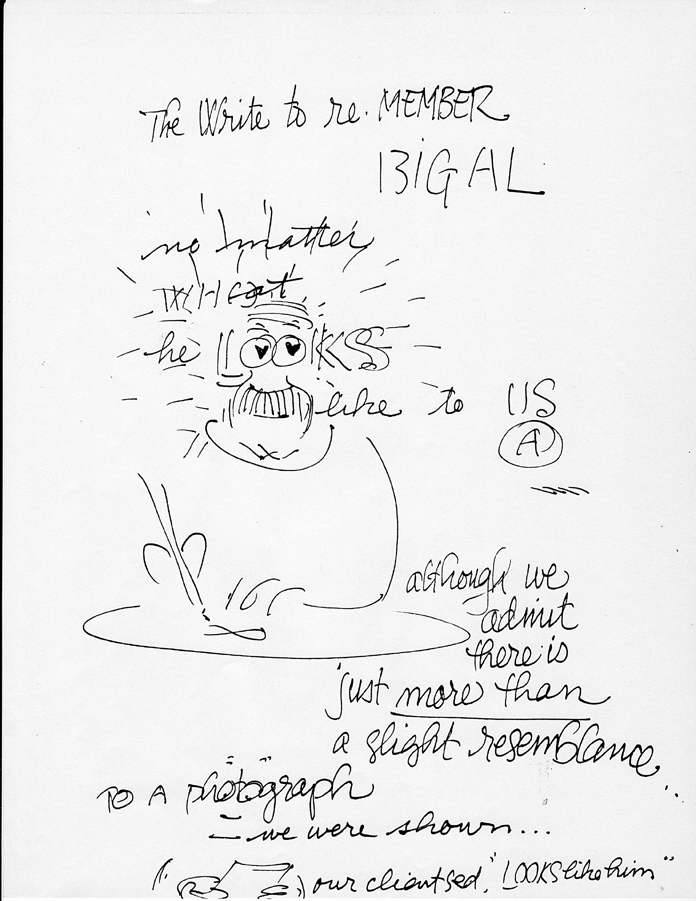 The Write to re. MEMBER
BIG AL
no matter
he LOOKS
like to US
A
although we
admit
there is
just more than
a slight resemblance..
TO A photograph
- we were shown...
(" ) our client sed, "LOOKS like him"